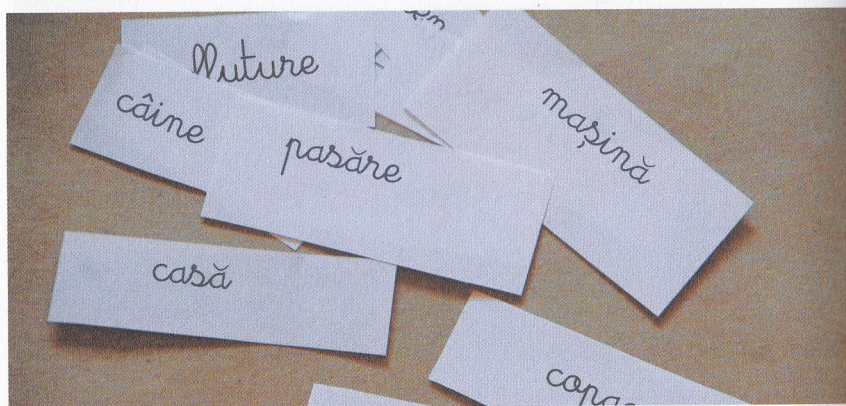 fluture
câine
pasăre
mașină
casă
copac